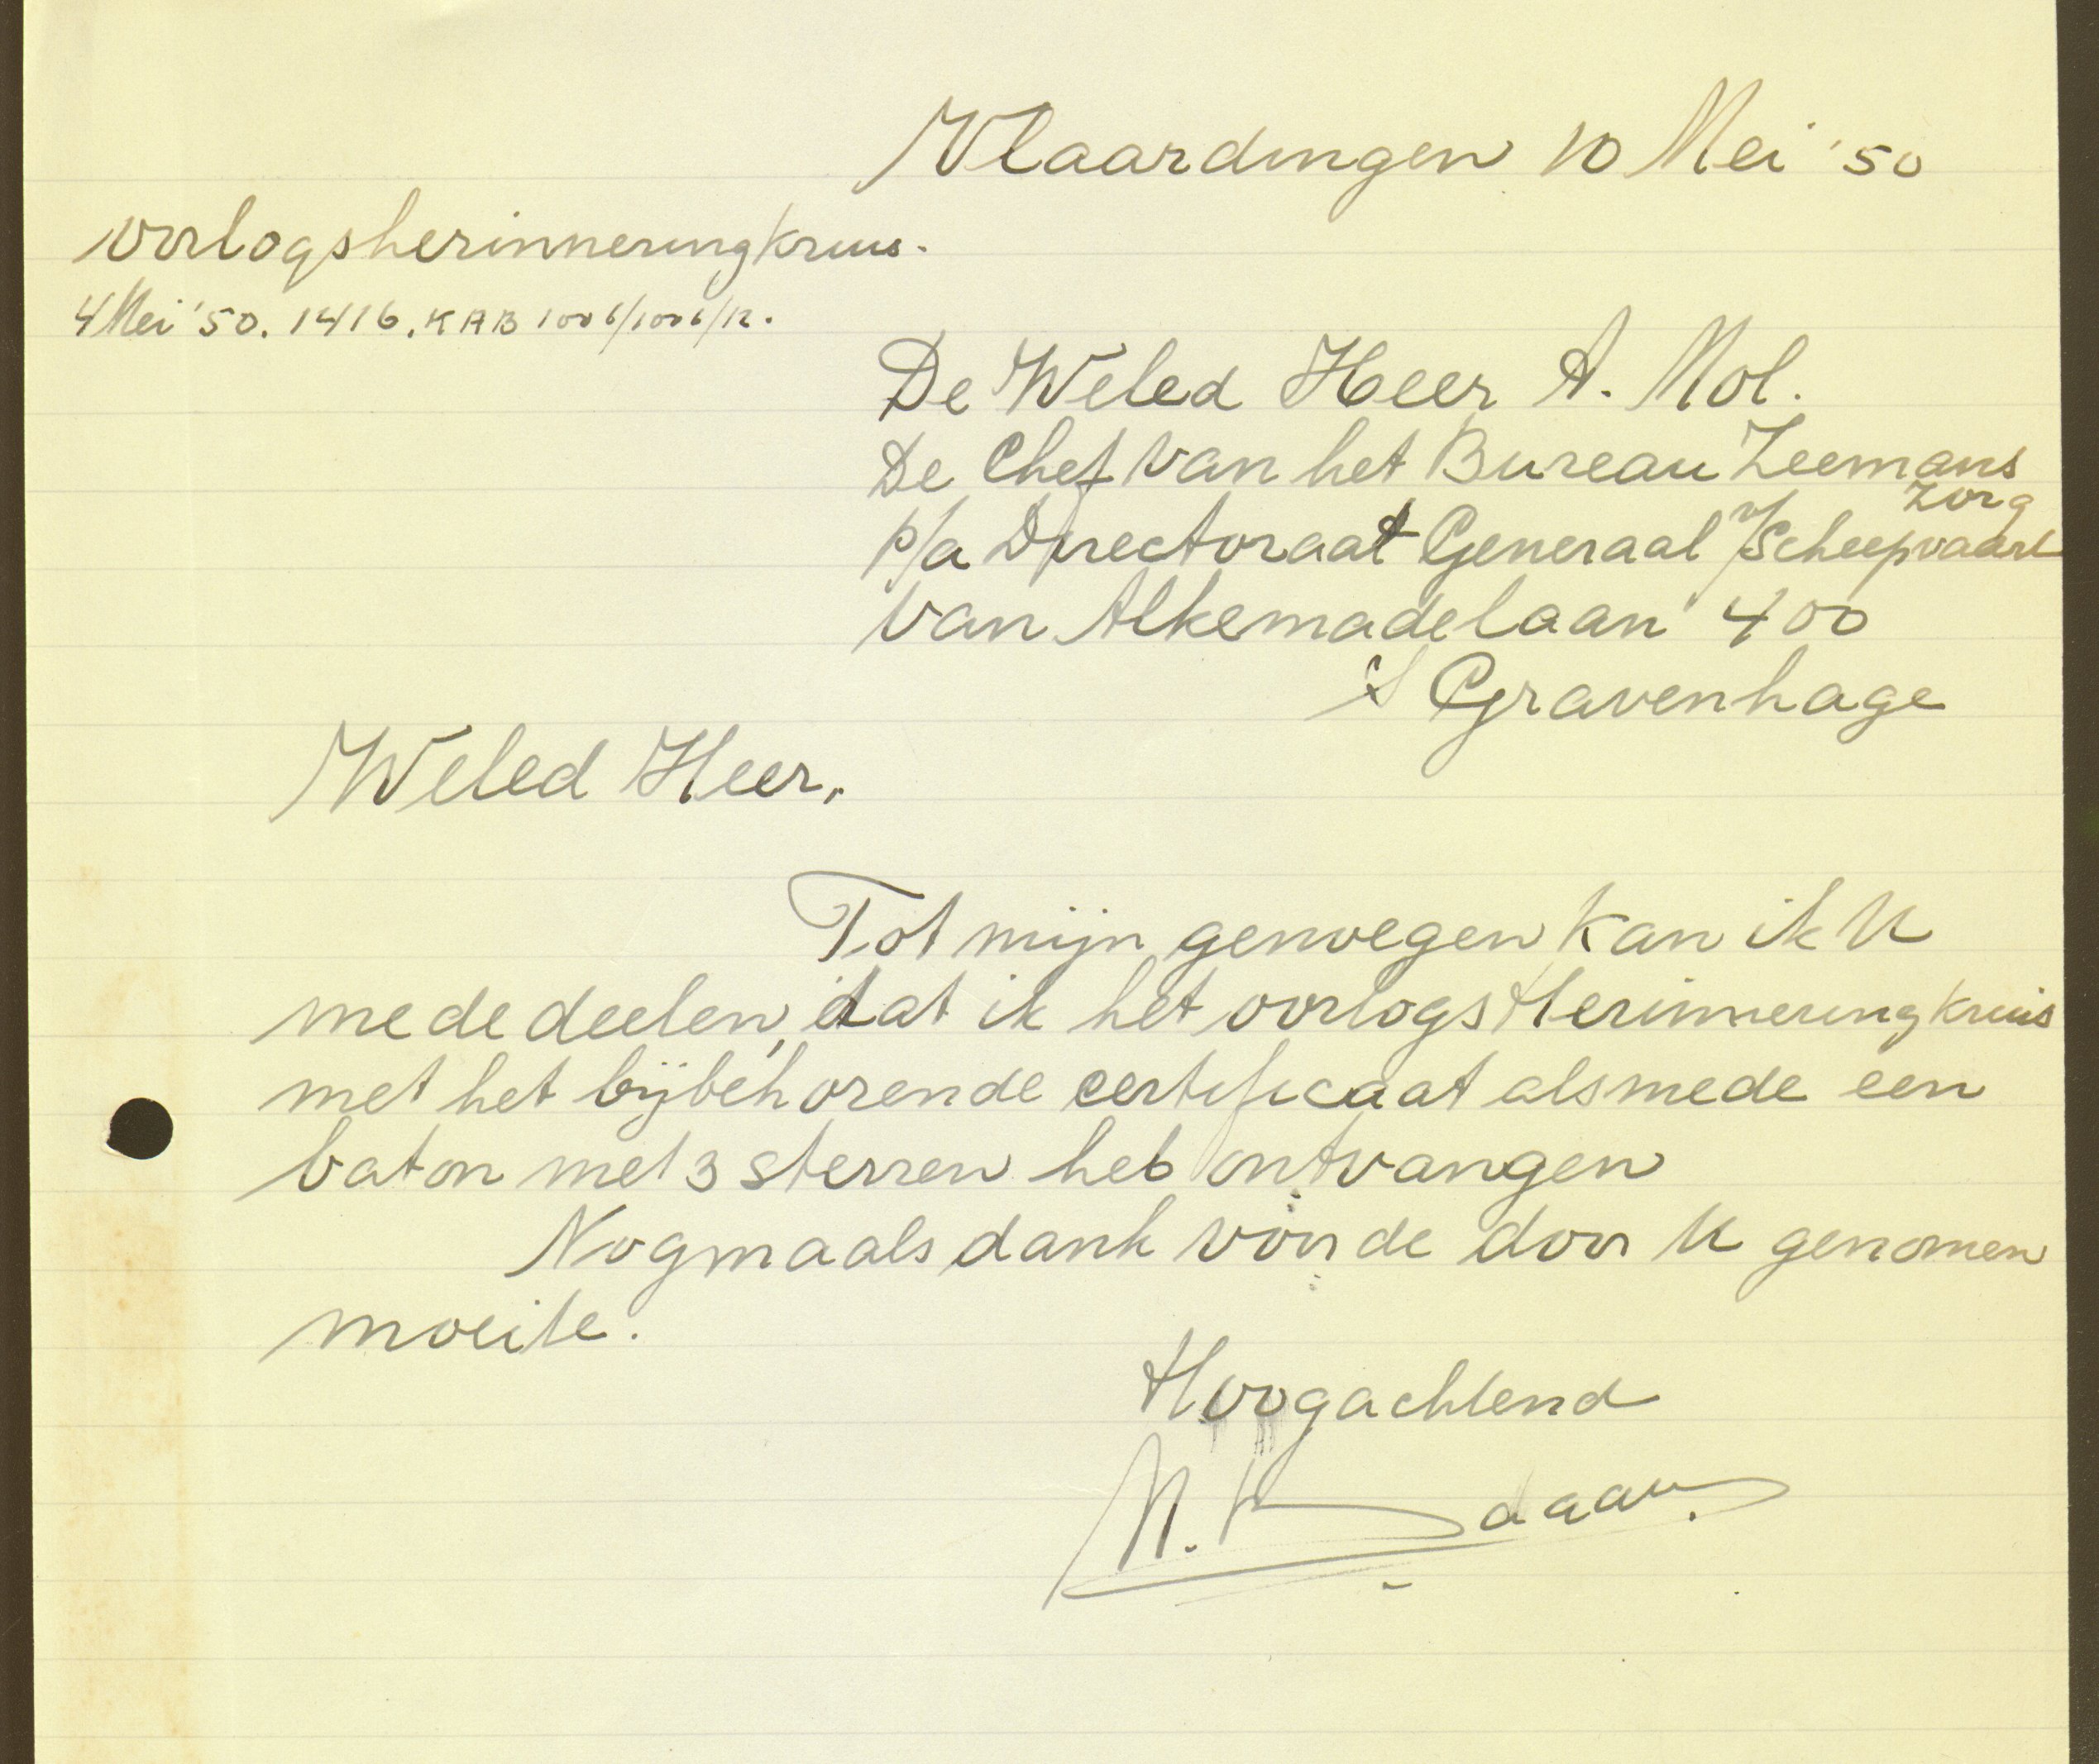 Vlaardingen 10 Mei '50
oorlogsherinneringkruis.
4 Mei '50. 1416. KAB 1006/1006/12.
De Weled Heer A. Mol.
De Chef van het Bureau Zeemans
zorg
p/a Directoraat Generaal v/Scheepvaart
van Alkemadelaan 400
's Gravenhage
Weled Heer,
Tot mijn genoegen kan ik U
mededeelen, dat ik het oorlogsHerinneringkruis
met het bijbehorende certificaat alsmede een
baton met 3 sterren heb ontvangen
Nogmaals dank voor de door U genomen
moeite.
Hoogachtend